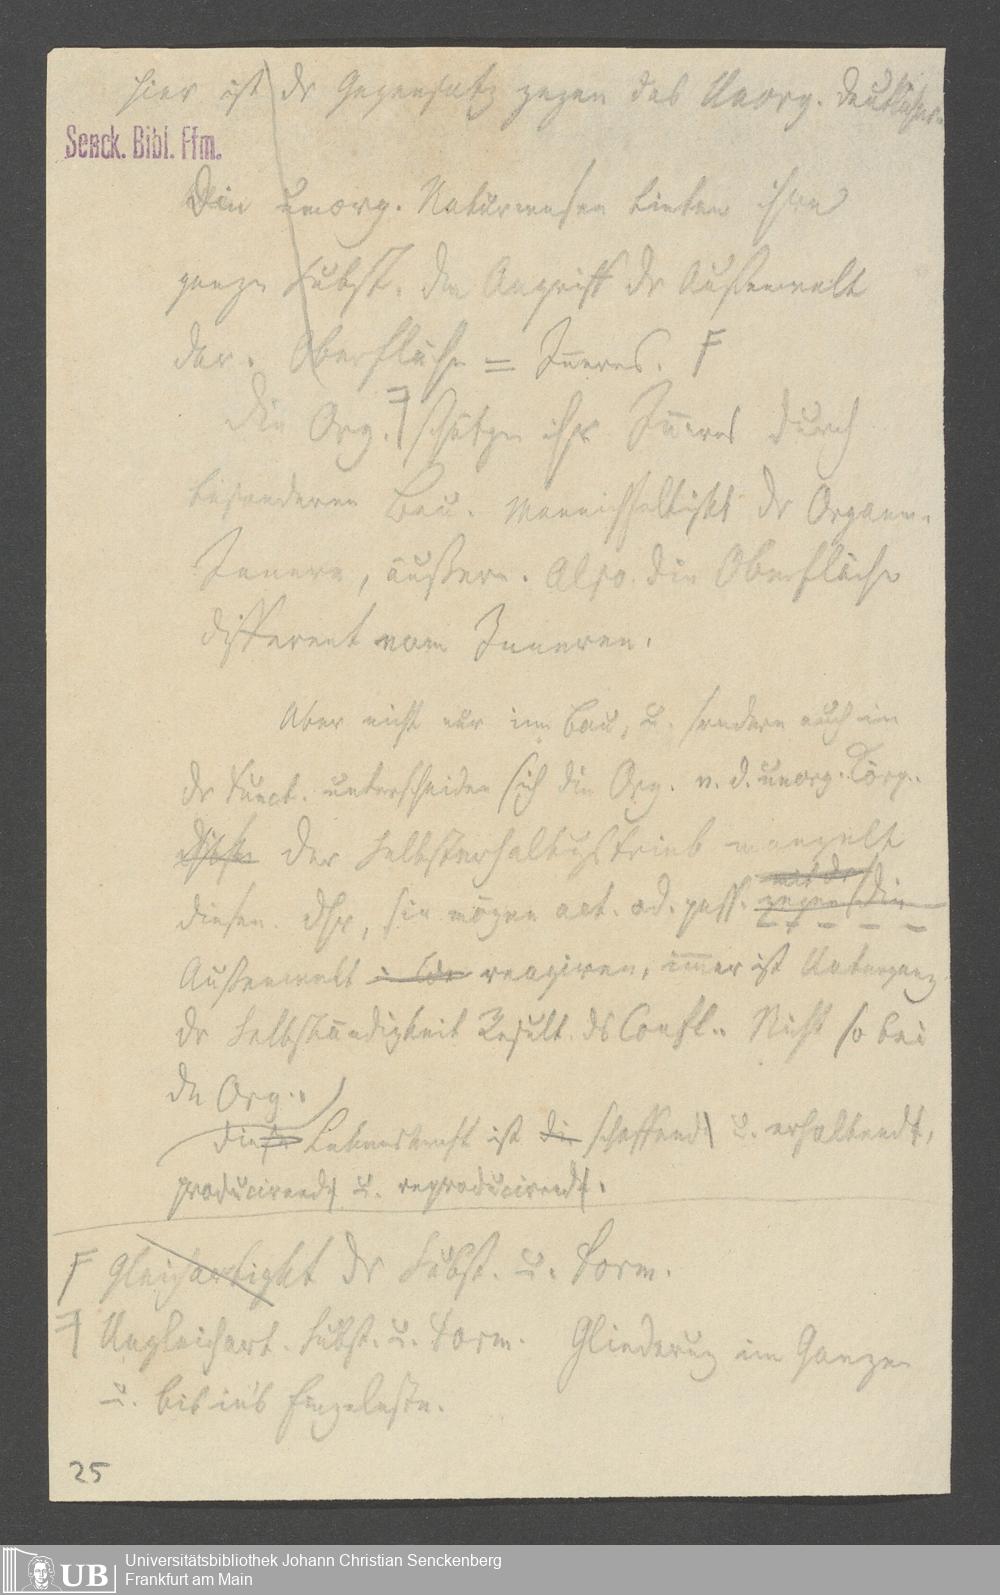 hier ist dr Gegensatz gegen das Unorg. deutlicher.
Senck. Bibl. Ffm.
Die unorg. Naturwesen bieten ihre
ganze Subst. dem Angriff dr Außenwelt
dar. Oberfläche = Inneres. F
Die Org. schützen ihr Inneres durch
besonderen Bau. Mannichfaltigkt dr Organe.
Innere, äußere. Also die Oberfläche
different vom Inneren.
Aber nicht nur im Bau, u. sondern auch in
dr Funct. unterscheiden sich die Org. v. d. unorg. Körp.
der Selbsterhaltungstrieb mangelt
diesen. Dhr, sie mögen act. od. pass. gegen die
mit dr
Außenwelt reagiren, immer ist Untergang
dr Selbständigkeit Result. ds Confl. Nicht so bei
dn Org.
die Lebenskraft ist die schaffend u. erhaltend,
producirend u. reproducirend.
F Gleichartigkt dr Subst. u. Form.
Ungleichart. Subst. u. Form. Gliederung im Ganzen
u. bis in's Einzelnste.
25
UB
Universitätsbibliothek Johann Christian Senckenberg
Frankfurt am Main